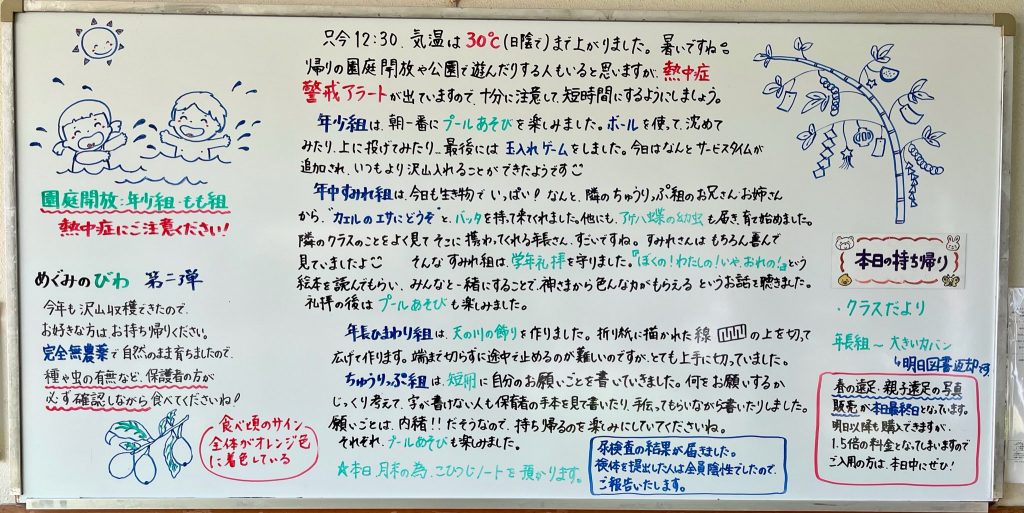 只今12:30、気温は30℃(日陰で)まで上がりました。暑いですね。
帰りの園庭開放や公園で遊んだりする人もいると思いますが、熱中症
警戒アラートが出ていますので、十分に注意して、短時間にするようにしましょう。
年少組は、朝一番にプールあそびを楽しみました。ボールを使って、沈めて
みたり、上に投げてみたり、最後には玉入れゲームをしました。今日はなんとサービスタイムが
追加され、いつもより沢山入れることができたようです
年中すみれ組は、今日も生き物でいっぱい!なんと、隣のちゅうりっぷ組のお兄さんお姉さん
から、"カエルのエサにどうぞ"と、バッタを持って来てくれました。他にも、アゲハ蝶の幼虫も届き、育て始めました。
隣のクラスのことをよく見てそこに携わってくれる年長さん、すごいですね。すみれさんはもちろん喜んで
見ていましたよ そんなすみれ組は、学年礼拝を守りました。『ぼくの!わたしの!いや、おれの!』という
絵本を読んでもらい、みんなと一緒にすることで、神さまから色んな力がもらえるというお話を聴きました。
礼拝の後はプールあそびも楽しみました。
年長ひまわり組は、天の川の飾りを作りました。折り紙に描かれた線の上を切って
広げて作ります。端まで切らずに途中で止めるのが難しいのですが、とても上手に切っていました。
ちゅうりっぷ組は、短冊に自分のお願いごとを書いていきました。何をお願いするか
じっくり考えて、字が書けない人も保育者の手本を見て書いたり、手伝ってもらいながら書いたりしました。
願いごとは、内緒!!だそうなので、持ち帰るのを楽しみにしていてくださいね。
それぞれ、プールあそびも楽しみました。
☆本日、月末の為、こひつじノートを預かります。
尿検査の結果が届きました。
検体を提出した人は全員陰性でしたので、
ご報告いたします。
園庭開放:年少組・もも組
熱中症にご注意ください!
めぐみのびわ 第二弾
今年も沢山収穫できたので、
お好きな方はお持ち帰りください。
完全無農薬で自然のまま育ちましたので、
種や虫の有無など、保護者の方が
必ず確認しながら食べてくださいね!
食べ頃のサイン
全体がオレンジ色
に着色している
本日の持ち帰り
・クラスだより
年長組〜大きいカバン
↳明日図書返却です。
春の遠足・親子遠足の写真
販売が本日最終日となっています。
明日以降も購入できますが、
1.5倍の料金となってしまいますので
ご入用の方は、本日中にぜひ!